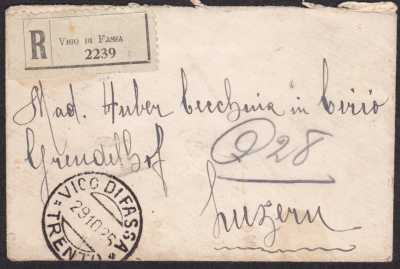 R
VIGO DI FASSA
2239
Mad. Huber Cecchinia in Cirio
Grendelhof
Q 28
Luzern
VIGO DI FASSA
29.10.25
TRENTO